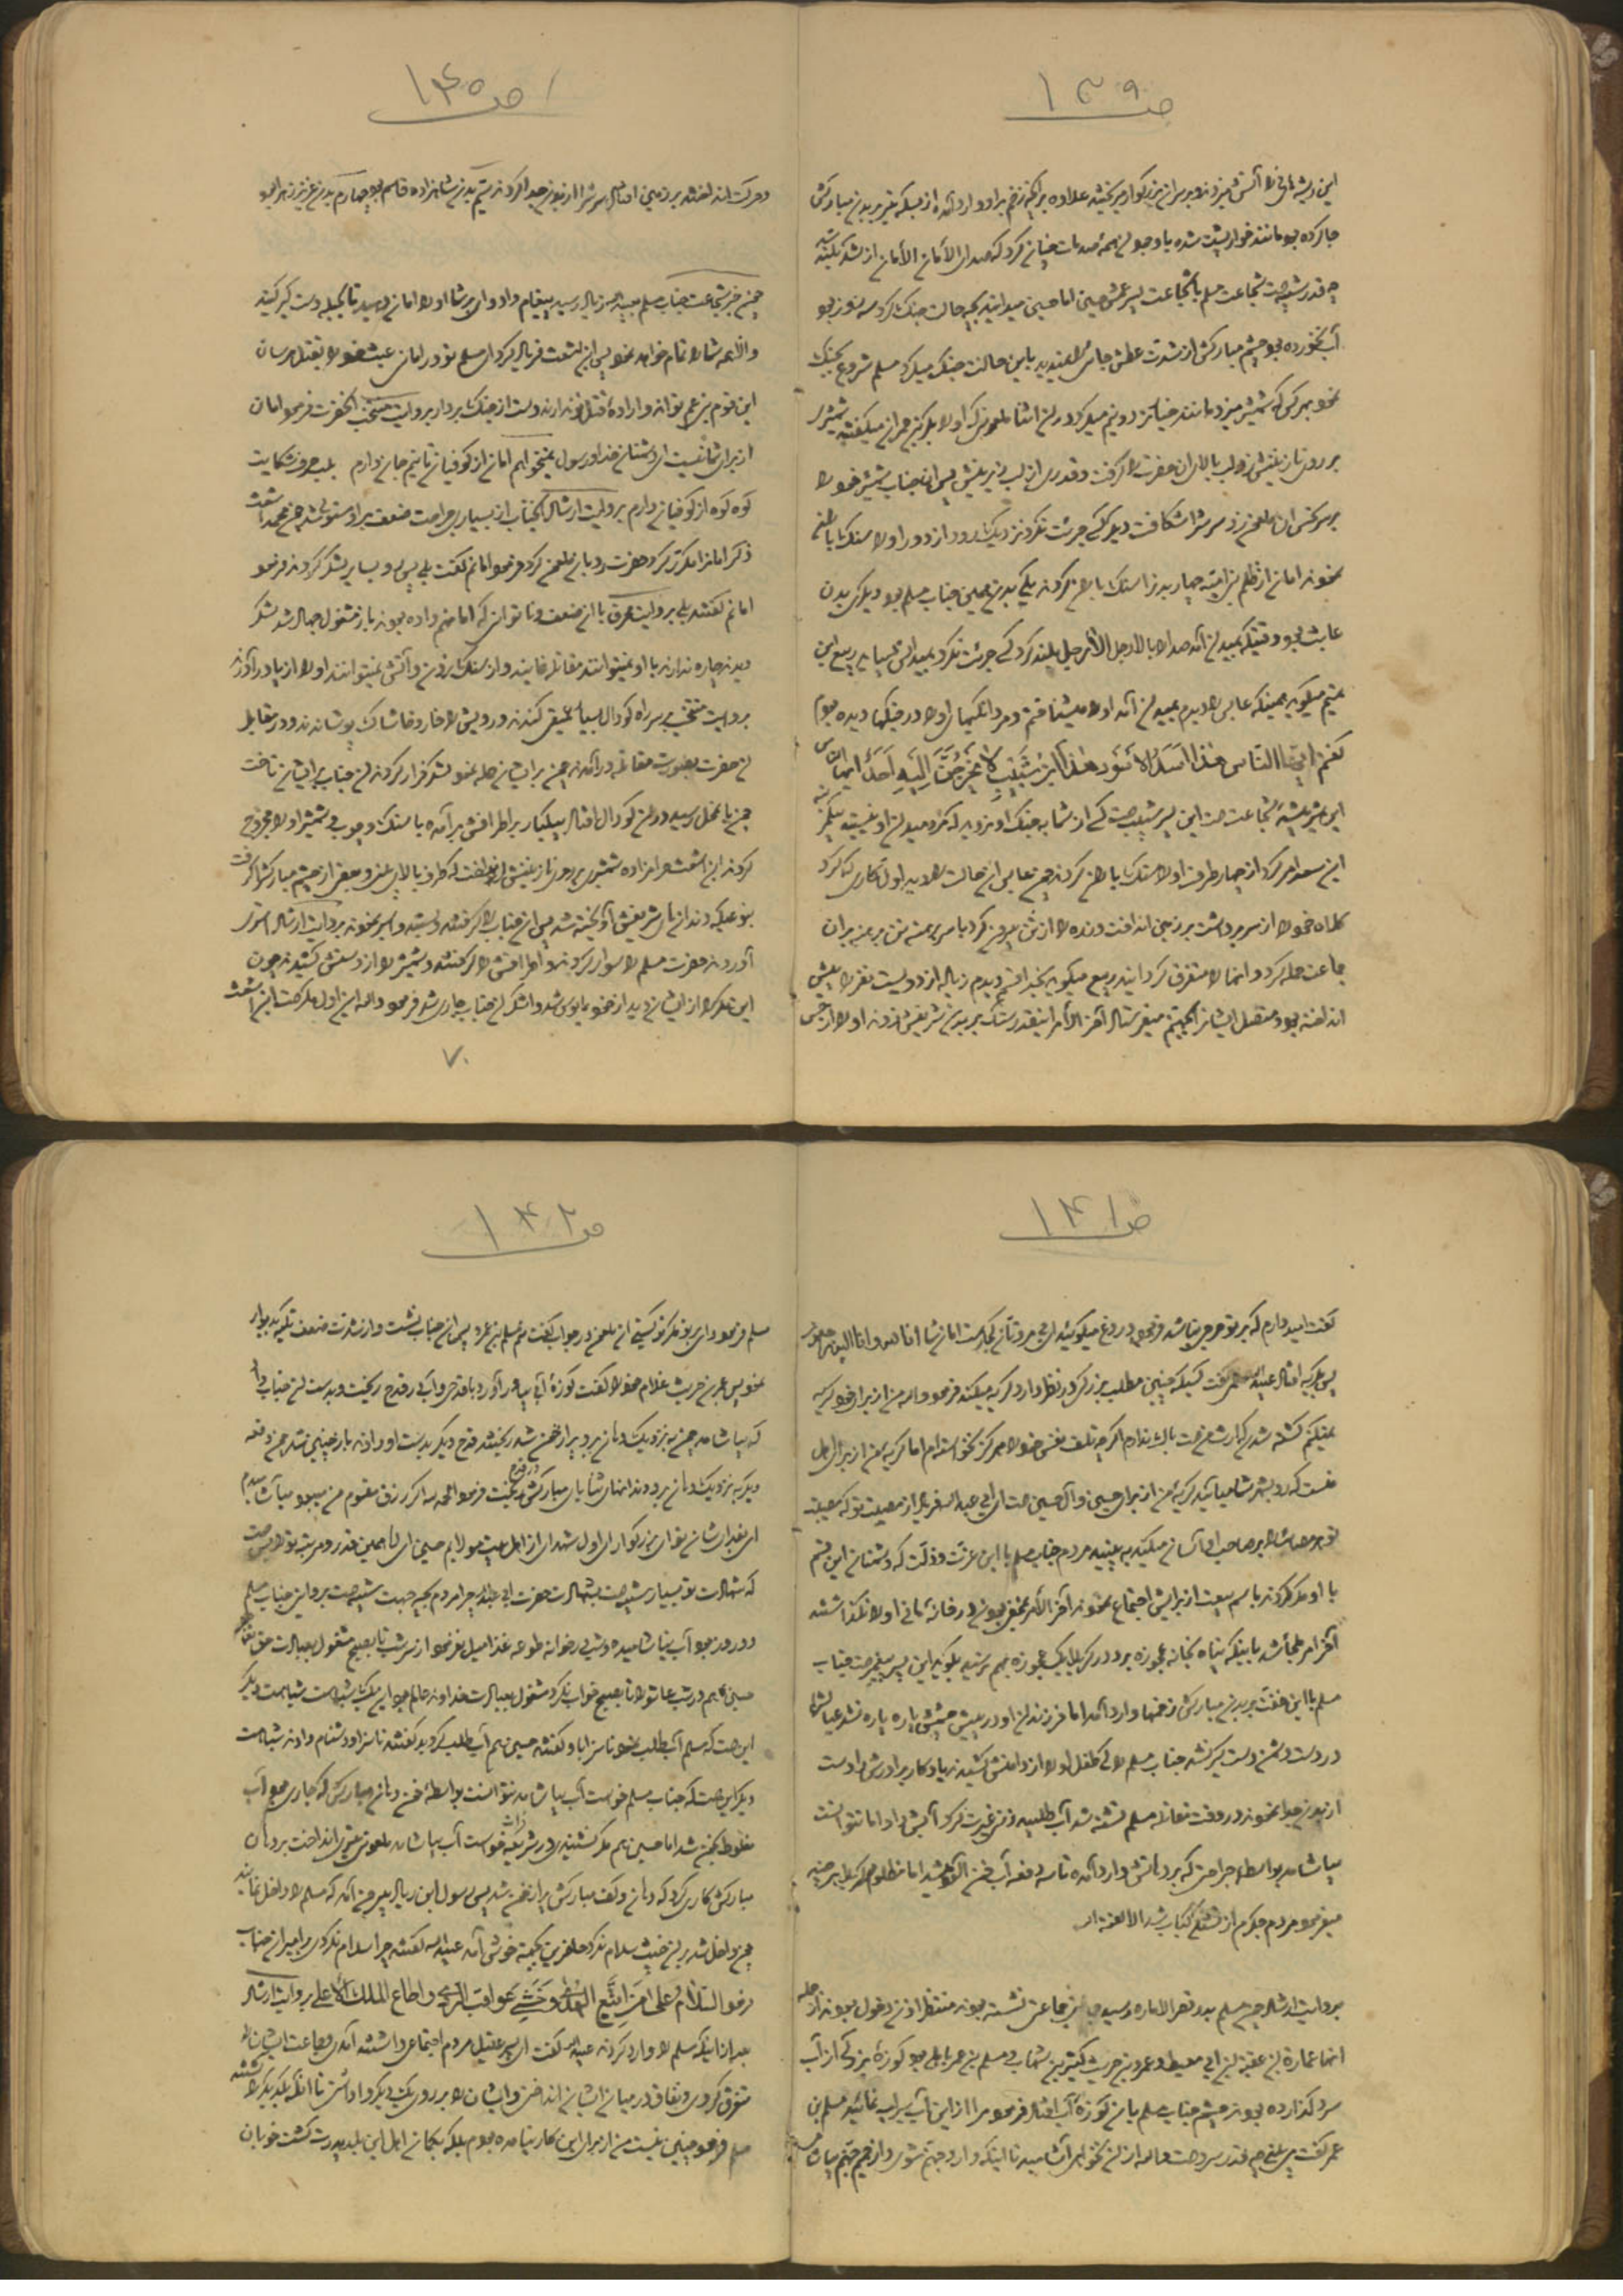 ص ۱۳۹
این ریشه‌های نی را آتش میزدند و بر سر آن بزرگوار میریختند علاوه بر آنکه زخم بر او وارد آمده از بسکه تیر بر بدن مبارکش
جا کرده بود مانند خوارپشت شده با وجود این همه صدمات چنان کرد که صدای الأمان الأمان از لشکر بلند شد
چه قدر شبیه است شجاعت مسلم با شجاعت پسر عمش حسین اما حسین میدانید بچه حالت جنگ کرد سه روز بود
آب نخورده بود چشم مبارکش از شدت عطش جائی را نمیدید باین حالت جنگ میکرد مسلم شروع بجنگ
نمود بهر کس که شمشیر میزد مانند خیار تر دو نیم میکرد در این اثنا ملعونی که او را بکر بن حمران میگفتند شمشیری
بر روی نازنینش زد لب بالای آن حضرت را گرفت و قدری از لب زیرینش پس آن جناب شمشیر خود را
بر سر نحس آن ملعون زد سرش را شکافت دیگر کسی جرئت نکرد نزدیک رود از دور او را سنگ باران
نمودند امان از ظلم بنی امیه چهار بدن را سنگ باران کردند یکی بدن همین جناب مسلم بود دیگری بدن
عابس بود وقتیکه بمیدان آمد صدا را بالا رجل الا رجل بلند کرد کسی جرئت نکرد بمیدانش بیاید ربیع ابن
تمیم میگوید همینکه عابس را دیدم بمیدان آمد او را میشناختم و مردانگیهای او را در جنگها دیده بودم
گفتم ایها الناس هذا اسد الاسود هذا ابن شبیب لا یخرجن الیه احد ایها الناس
این شیر بیشه شجاعت است این پسر شبیب است کسی از شما به جنگ او نرود که مرد میدان او نیستید
ابن سعد امر کرد از چهار طرف او را سنگ باران کردند چون عابس این حالت را دید اول کاری که کرد
کلاه خود را از سر برداشت بر زمین انداخت و زره را از تن بیرون کرد با سر برهنه تن برهنه بر آن
جماعت حمله کرد و آنها را متفرق گردانید ربیع میگوید بخدا قسم دیدم زیاده از دویست نفر را پیش
انداخته بود و متصل ایشان را میکشت آخر الأمر اینقدر سنگ بر بدن شریفش زدند او را از حس
ص ۱۴۰
و حرکت انداختند بر زمین افتاد سرش را از بدن جدا کردند سیم بدن شاهزاده قاسم بود چهارم بدن عزیز زهرا بود
چون خبر شجاعت جناب مسلم بعبید الله زیاد رسید پیغام داد وای بر شما او را امان دهید تا بحیله دستگیر کنید
والا همه شما را تمام خواهد نمود پس ابن اشعث فریاد کرد ای مسلم تو در امانی عبث خود را بقتل مرسان
این قوم بنی عم تواند و اراده قتل تو ندارند دست از جنگ بردار بروایت منتخب آنحضرت فرمود امان
از برای شما نیست ای دشمنان خدا و رسول نمیخواهم امان از کوفیان تا نیم جان دارم بلب حرف شکایت
کوه کوه از کوفیان دارم بروایت ارشاد آنجناب از بسیاری جراحت ضعف بر او مستولی شد چون محمد اشعث
ذکر امان را مکرر کرد حضرت رو بآن ملعون کرد و فرمود امانم گفت بلی پس رو بسایر لشکر کردند فرمود
امانم گفتند بلی بروایت محرق با آن ضعف و ناتوانی که امانم داده بودند باز مشغول جدال شد لشکر
دیدند چاره ندارند با او نمیتوانند مقاتله نمایند و از سنگ زدن و آتش نمیتوانند او را از پا درآورند
بروایت منتخب بر سر راه گودال بسیار عمیقی کندند و رویش را خار و خاشاک پوشاندند و در مقابل
آن حضرت بصورت مقاتله درآمدند چون بر ایشان حمله نمود لشکر فرار کردند آن جناب بر ایشان تاخت
چون بآن محل رسید در آن گودال افتاد بیکبار بر اطرافش برآمده با سنگ و چوب و شمشیر او را مجروح
کردند ابن اشعث حرامزاده شمشیری بر روی نازنینش انداخت که طرف بالای بینی و بعضی از چشم مبارکش را گرفت
بنوعیکه دندانهای شریفش آویخته شد پس آن جناب را گرفتند و بسته و اسیر نمودند بروایت ارشاد استری
آوردند حضرت مسلم را سوار کردند و اطرافش را گرفتند و شمشیر را از دستش کشیدند چون
این مکر را از ایشان دید از خود مأیوس شد و اشک آن جناب جاری شد فرمود والله این اول مکر است ابن اشعث
۷۰
ص ۱۴۱
گفت امید دارم که بر تو حرجی نباشد فرمود دروغ میگوئید ای بی مروتان کجاست امان شما انا لله و انا الیه راجعون
پس بگریه افتاد عبید الله گفت کسیکه چنین مطلب بزرگی در نظر دارد گریه میکند فرمود والله من از برای خود گریه
نمیکنم کشته شدن کار ارث من است باک ندارم اگر چه تلف نفس خود را هرگز نخواستم اما گریه من از برای اهل
منست که رو بشهر شما میآیند گریه من از برای حسین و آل حسین است ای ابی عبد الله فریاد از مصیبت تو که مصیبت
تو هر مصائب را بر صاحب او آسان میکند به بینید مردم جناب مسلم با این عزت و ذلت که دشمنان این قسم
با او مکر کردند باسم بیعت از برایش اجتماع نمودند آخر الأمر متفرق نمودند و در خانه هانی او را نگذاشتند
آخر امر ملجأ شد باینکه پناه بخانه عجوزه برد در کربلا یک عجوزه بهم نرسید بگوید این پسر پیغمبر است جناب
مسلم با این خفت بر بدن مبارکش زخمها وارد آمد اما فرزند آن او در پیش چشمش پاره پاره نشد عیالش
در دست دشمن دستگیر نشد جناب مسلم را کی طفل او را از دامنش کشیدند یا دکار برادرش را دست
از بدن جدا نمودند در وقت مقاتله مسلم تشنه شد آب طلبید زنی غیرت کرد آبش داد اما نتوانست
بیاشامد بواسطه جراحتی که بر دهانش وارد آمده تا سه دفعه آب خون آلود شد اما مظلوم کربلا هر چند
میفرمود مردم جگرم از تشنگی کباب شد الا لعنة الله
بروایت ارشاد چون مسلم بدر قصر الاماره رسید جماعتی نشسته بودند منتظر اذن دخول بودند از جمله
آنها عمارة بن عقبة بن ابی معیط و عمرو بن حریث و کثیر بن شهاب و مسلم بن عمر باهلی بود کوزه بزرگی از آب
سرد گذارده بودند چشم جناب مسلم بآن کوزه آب افتاد فرمود مرا از این آب سیراب نمائید مسلم بن
عمر گفت می بینی چه قدر سرد است والله از آن نخواهی آشامید تا اینکه وارد جهنم شوی و از حمیم جهنم بیاشامی
ص ۱۴۲
مسلم فرمود وای بر تو مگر تو کیستی آن ملعون در جواب گفت من مسلم بن عمرو پس آن جناب نشست و از شدت ضعف تکیه بدیوار
نمود پس عمرو بن حریث غلام خود را گفت کوزه آبی بیاور آورد با قدحی و آب در قدح ریخت و بدست آن جناب داد
که بیاشامد چون به نزدیک دهان برد پر از خون شد ریختند قدح دیگر بدست او دادند باز چنین شد چون دفعه
دیگر به نزدیک دهان برد دندانهای ثنایای مبارکش در قدح ریخت فرمود الحمد لله اگر رزق مقسوم من میبود میآشامیدم
ای بفدای شأن تو ای بزرگوار ای اول شهدای از اهل بیت مولایم حسین ای همین قدر و مرتبه تو را بس است
که شهادت تو بسیار شبیه است بشهادت حضرت ابی عبد الله چرا مردم بچه جهت شبیه است بروایتی جناب مسلم
دو روز بود آب نیاشامیده و شب در خانه طوعه غذا میل نفرمود از سر شب تا بصبح مشغول بعبادت حق تعالی
حسین هم در شب عاشورا تا بصبح خواب نکرد مشغول بعبادت خداوند عالم بود این یک شباهت شباهت دیگر
این است که مسلم آب طلب نمود ناسزا باو گفتند حسین هم آب طلب گردید گفتند ناسزا و دشنام دادند شباهت
دیگر این است که جناب مسلم خواست آب بیاشامد نتوانست بواسطه خون دهان مبارکش که جاری بود آب
مخلوط بخون شد اما حسین هم مگر نشنیدی در شریعه فرات خواست آب بیاشامد ملعونی تیری انداخت بر دهان
مبارکش کاری کرد که دهان و کف مبارکش پر از خون شد پس رسول ابن زیاد بیرون آمد که مسلم را داخل نمائید
چون داخل شد بر آن خبیث سلام نکرد حاضرین را خوش نیامد عبید الله گفتند چرا سلام نکردی بر امیر آن جناب
فرمود السلام علی من اتبع الهدی و خشی عواقب الردی و اطاع الملک الأعلی بروایت ارشاد
بعد از اینکه مسلم را وارد کردند عبید الله گفت ای پسر عقیل مردم اجتماعی داشتند آمدی و جماعت ایشان را
متفرق کردی و نفاق در میان ایشان انداختی و ایشان را بر روی یکدیگر واداشتی تا آنکه یکدیگر را کشتند
مسلم فرمود چنین نیست من از برای این کار نیامده بودم بلکه بگمان اهل این بلد پدرت کشت خوبان